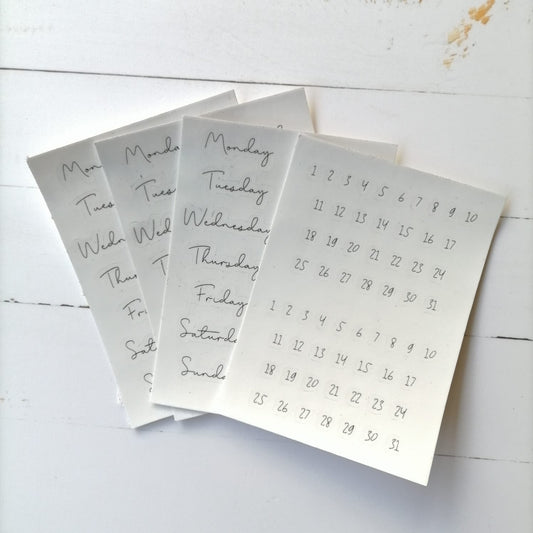 Monday
Tuesday
Wednesday
Thursday
Friday
Saturday
Sunday
1 2 3 4 5 6 7 8 9 10
11 12 13 14 15 16 17
18 19 20 21 22 23 24
25 26 27 28 29 30 31
1 2 3 4 5 6 7 8 9 10
11 12 13 14 15 16 17
18 19 20 21 22 23 24
25 26 27 28 29 30 31